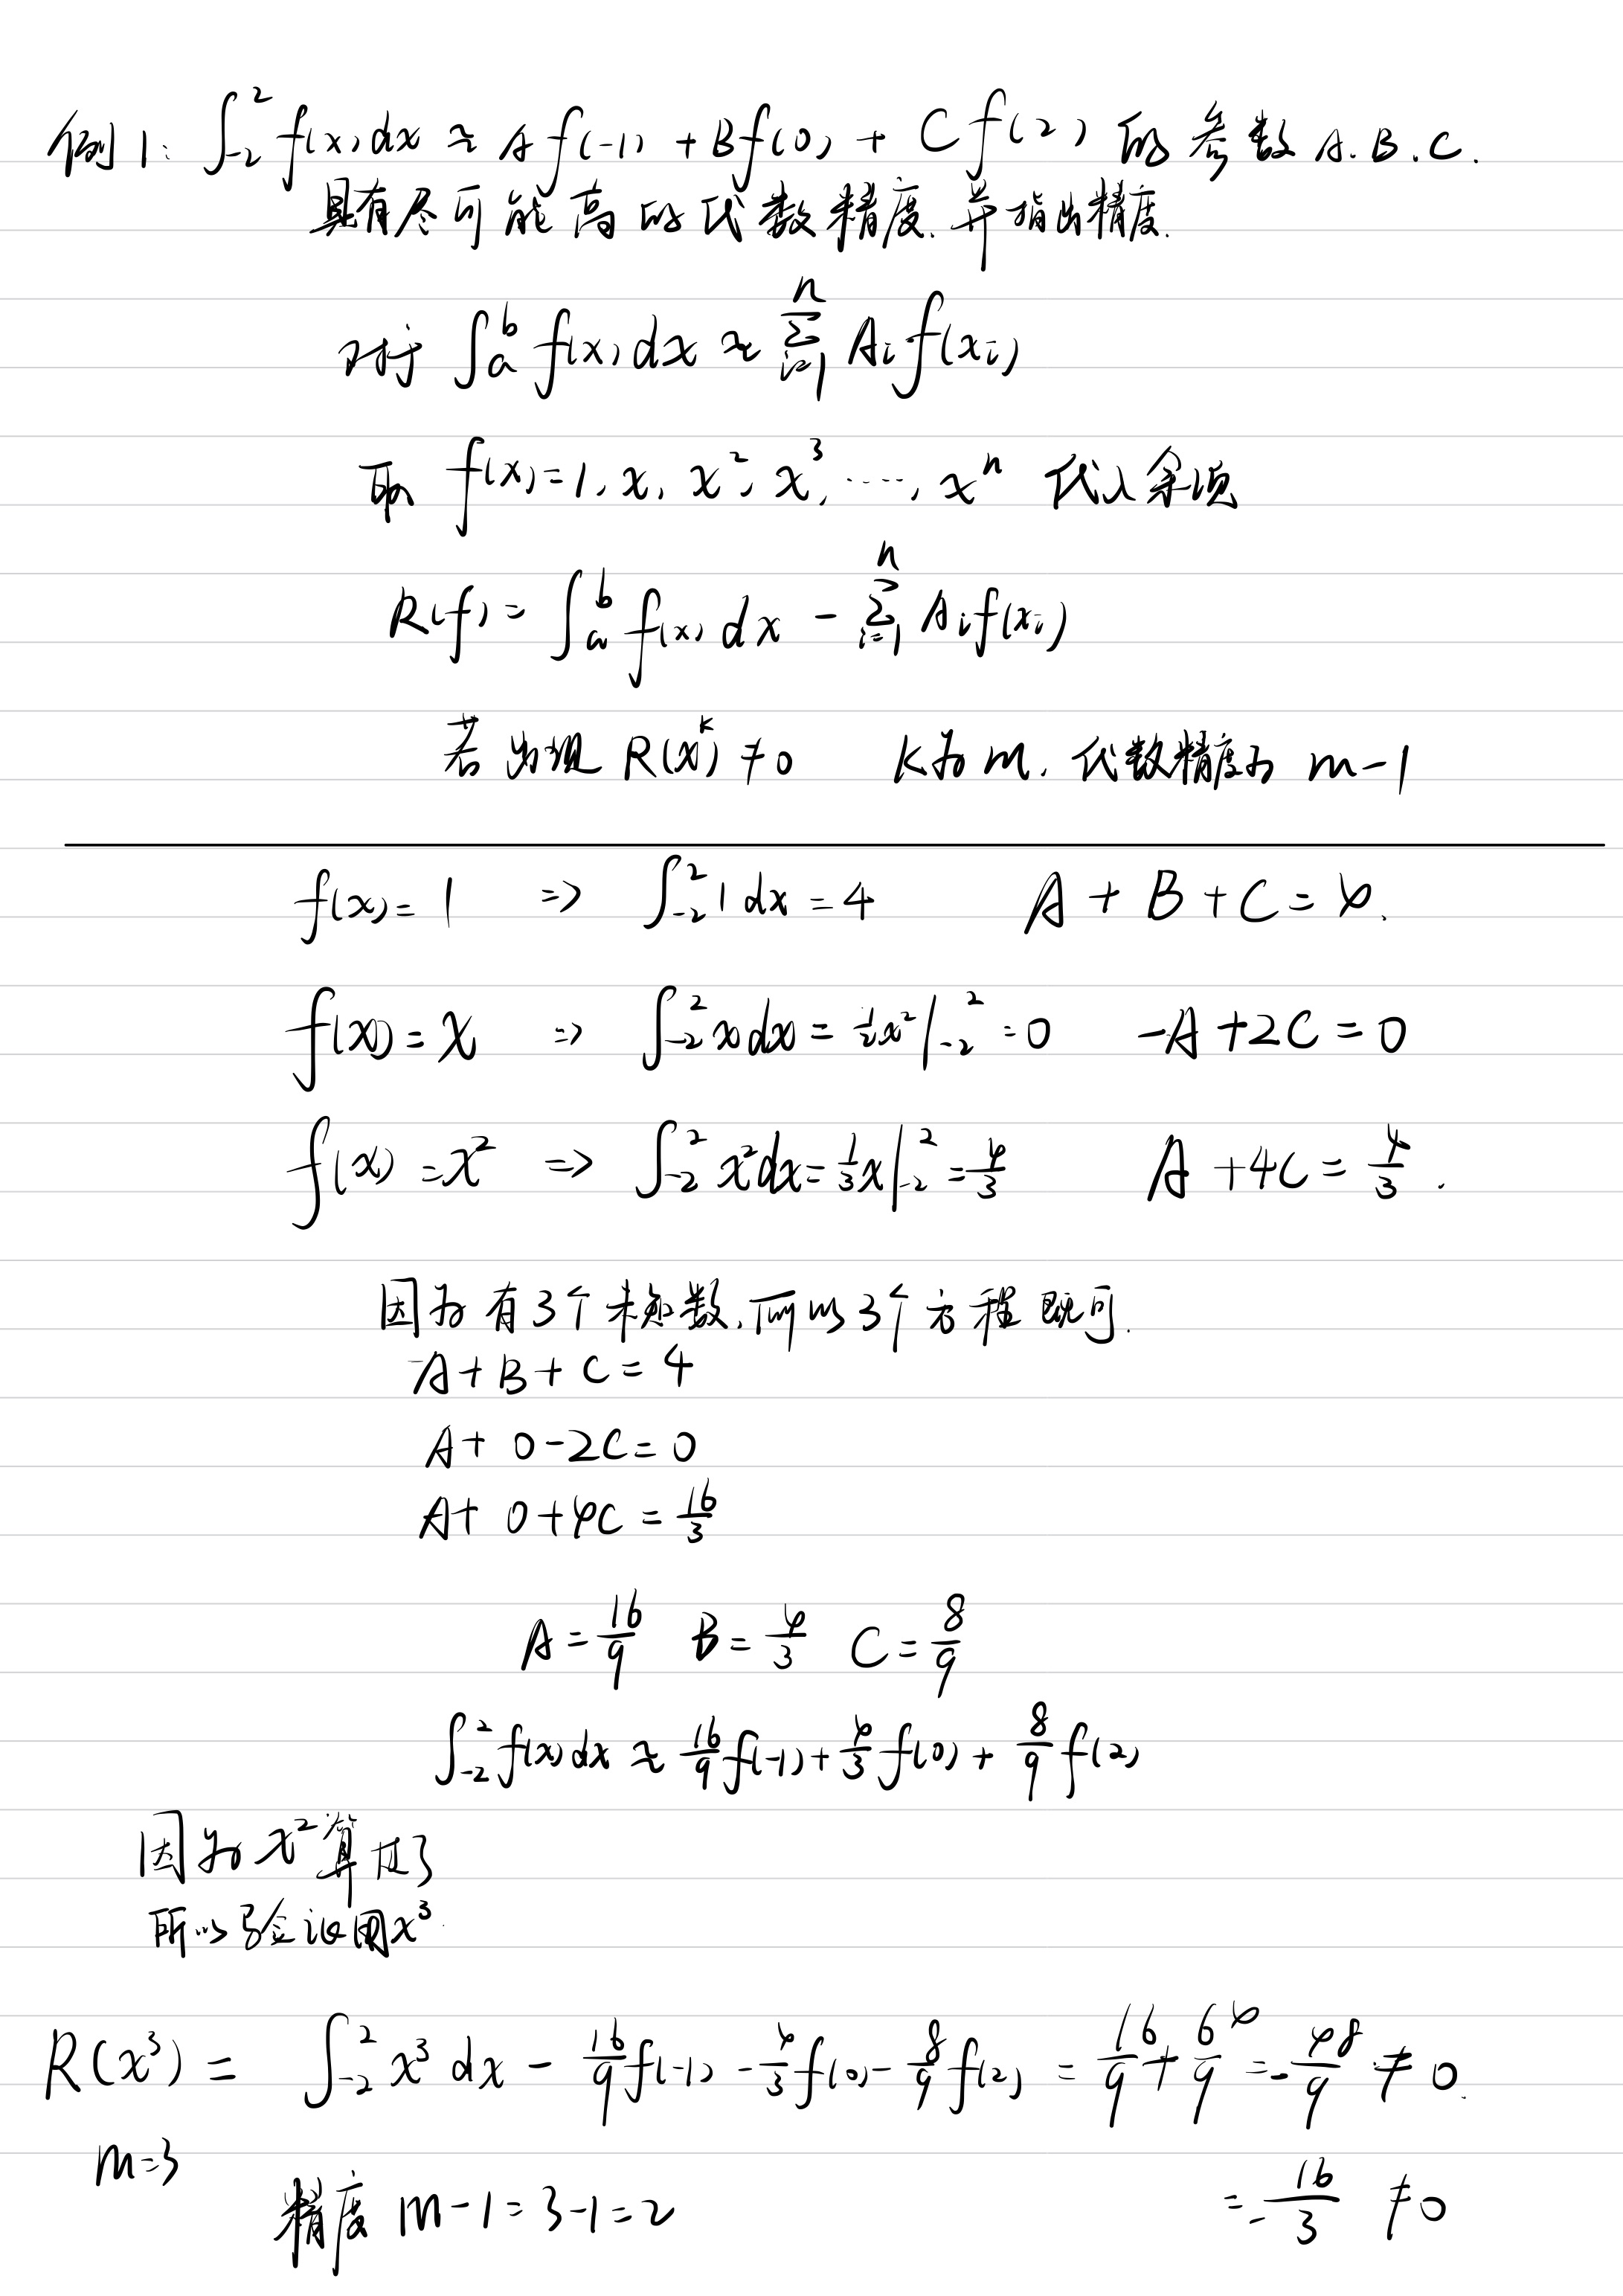 例1: ∫₋₂² f(x)dx ≈ Af(-1) + Bf(0) + Cf(2) 的参数 A.B.C.
具有尽可能高的代数精度.并指出精度.
对于 ∫ₐᵇ f(x)dx ≈ Σᵢ₌₁ⁿ Aᵢf(xᵢ)
取 f(x)=1, x, x², x³, ···, xⁿ 代入余项
R(f) = ∫ₐᵇ f(x)dx - Σᵢ₌₁ⁿ Aᵢf(xᵢ)
若出现 R(xᵏ) ≠ 0 k为m. 代数精度为 m-1
f(x) = 1 => ∫₋₂² 1dx = 4 A + B + C = 4.
f(x) = x => ∫₋₂² xdx = ½x²|₋₂² = 0 -A + 2C = 0
f(x) = x² => ∫₋₂² x²dx = ⅓x|₋₂² = 4/3 A + 4C = 4/3 .
因为有3个未知数,所以3个方程既可.
A + B + C = 4
A + 0 - 2C = 0
A + 0 + 4C = 16/3
A = 16/9 B = 4/3 C = 8/9
∫₋₂² f(x)dx ≈ 16/9 f(-1) + 4/3 f(0) + 8/9 f(2)
因为 x² 算过了
所以验证用x³.
R(x³) = ∫₋₂² x³ dx - 16/9 f(-1) - 4/3 f(0) - 8/9 f(2) = 16/9 + 64/9 = -48/9 ≠ 0.
m=3
精度 m-1=3-1=2
= -16/3 ≠ 0